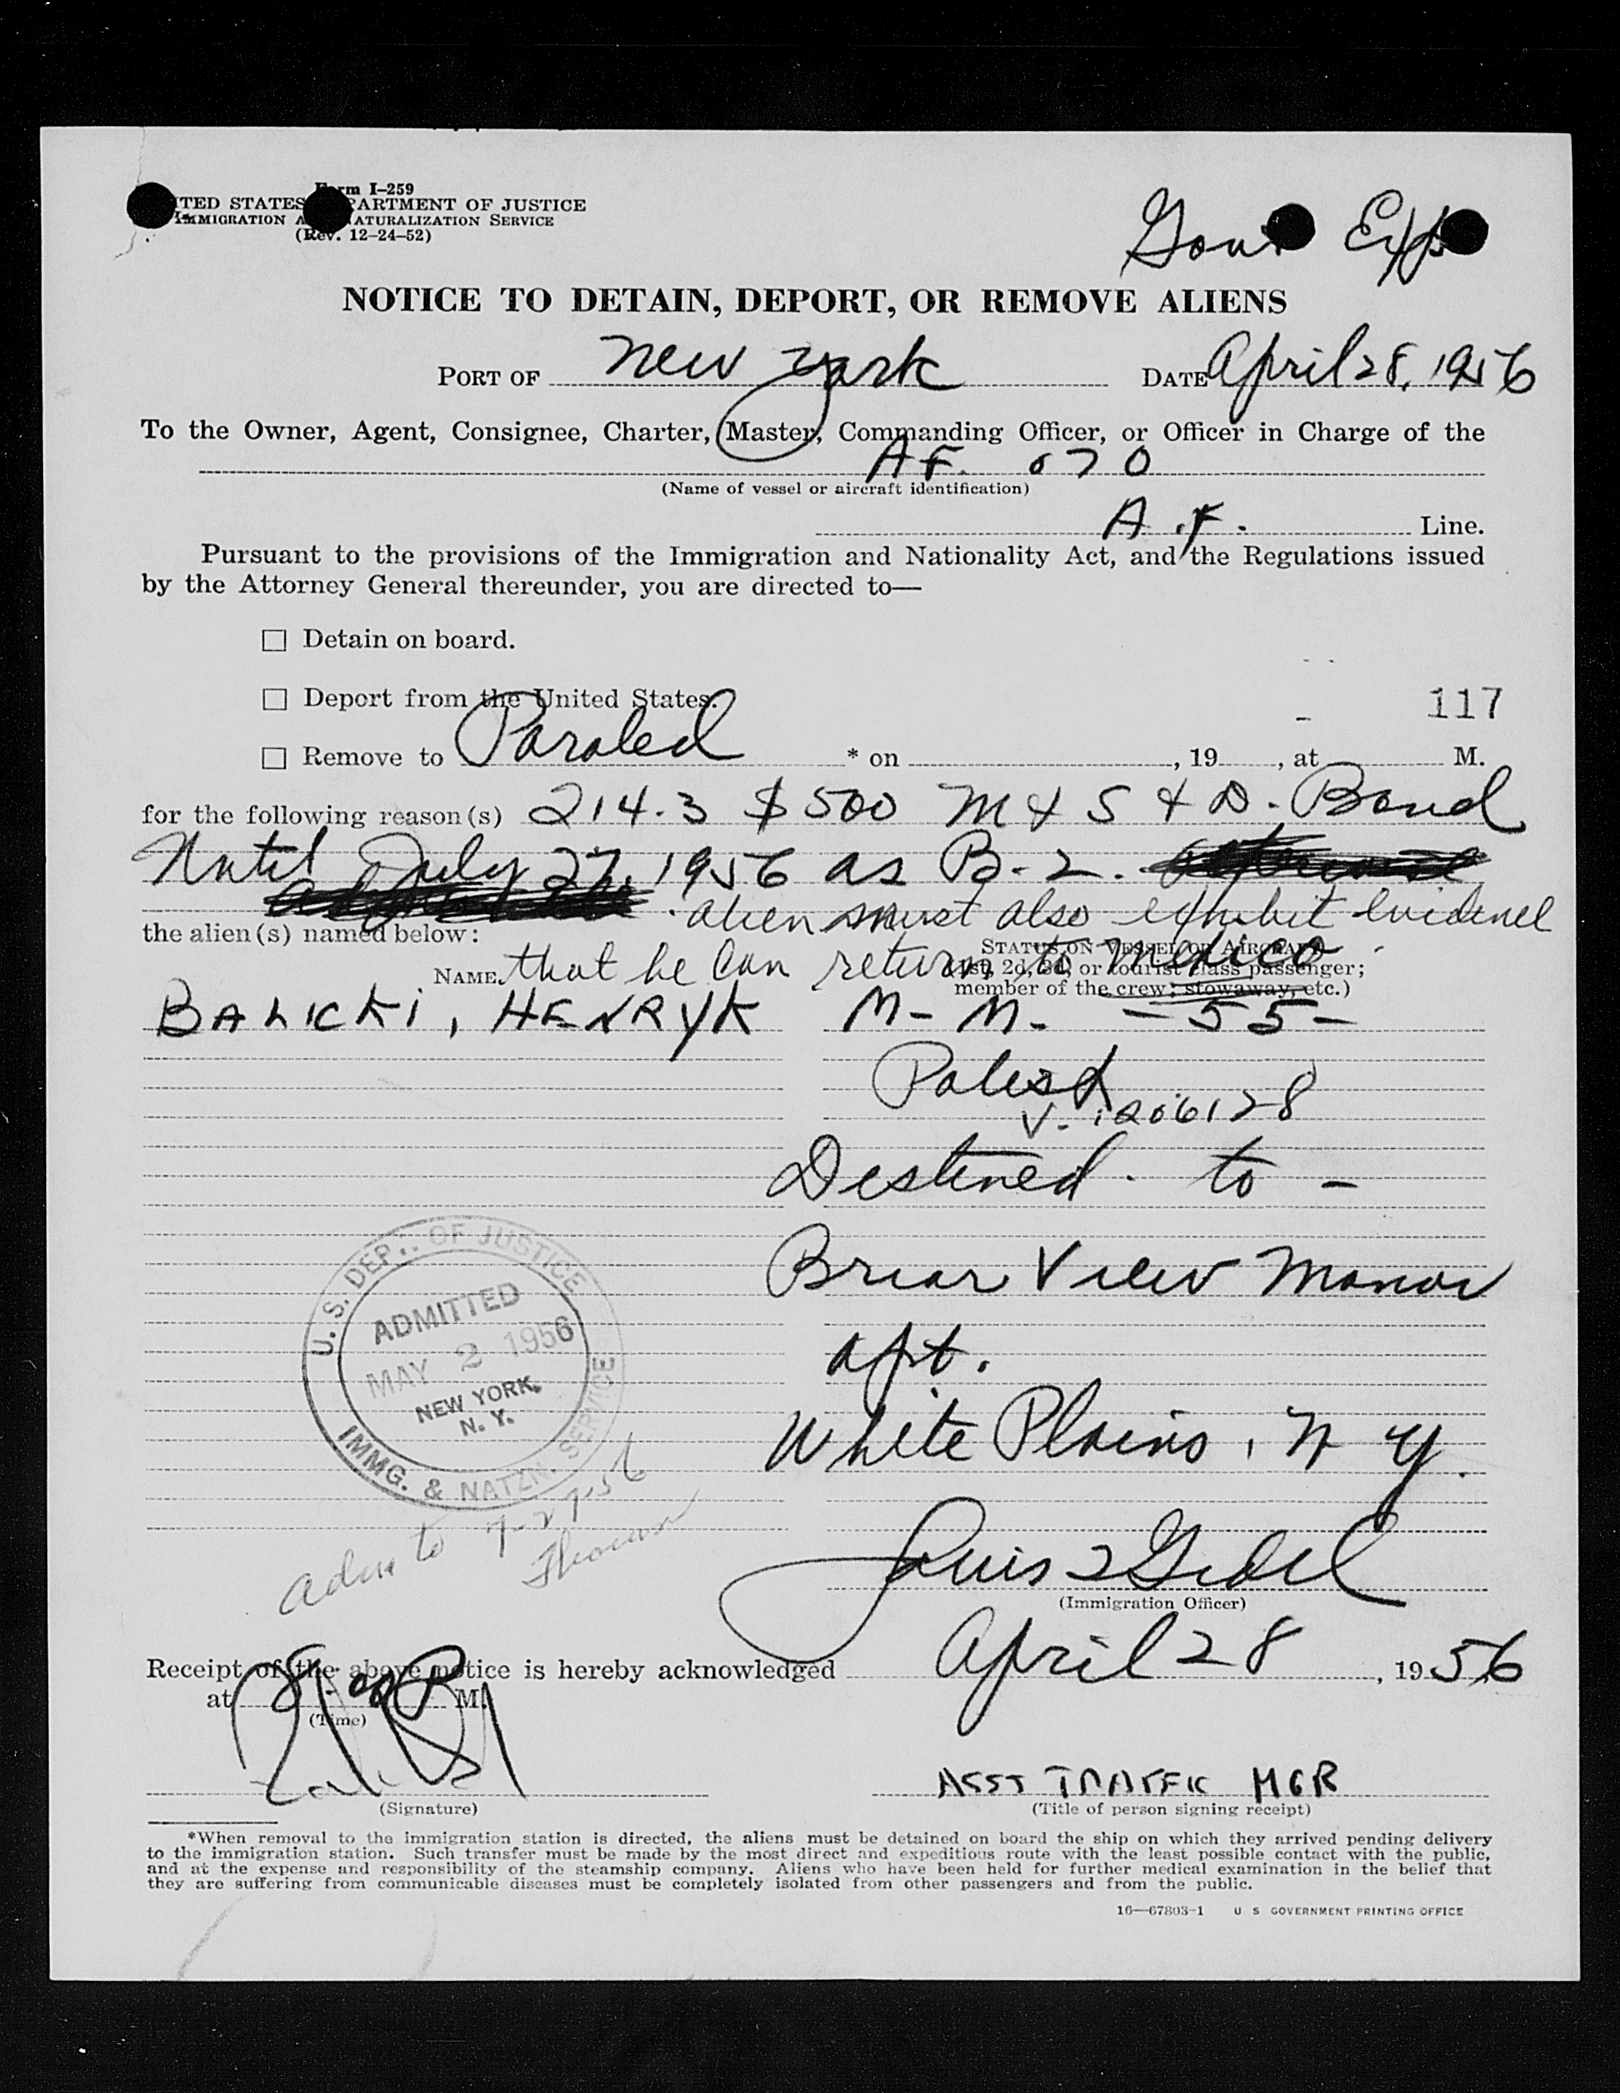 Form I-259
UNITED STATES DEPARTMENT OF JUSTICE
IMMIGRATION AND NATURALIZATION SERVICE
(Rev. 12-24-52)
Govt Exp
NOTICE TO DETAIN, DEPORT, OR REMOVE ALIENS
PORT OF New York DATE April 28, 1956
To the Owner, Agent, Consignee, Charter, Master, Commanding Officer, or Officer in Charge of the
AF. 070
(Name of vessel or aircraft identification)
A.F. Line.
Pursuant to the provisions of the Immigration and Nationality Act, and the Regulations issued
by the Attorney General thereunder, you are directed to—
☐ Detain on board.
☐ Deport from the United States.
117
☐ Remove to Paroled * on , 19 , at M.
for the following reason(s) 214.3 $500 M & S & D. Bond
Until July 27, 1956 as B-2.
alien must also exhibit evidence
the alien(s) named below:
STATUS ON VESSEL OR AIRCRAFT
NAME that he can return to Mexico
(1st, 2d, 3d, or tourist class passenger;
member of the crew; stowaway, etc.)
BALICKI, HENRYK M-M. -55-
Polish
V-1206128
Destined to -
Briar View Manor
apt.
White Plains, N Y.
U. S. DEPT. OF JUSTICE
ADMITTED
MAY 2 1956
NEW YORK,
N. Y.
IMMG. & NATZN. SERVICE
Adm to 7-27-56
Louis Gidel
(Immigration Officer)
Receipt of the above notice is hereby acknowledged April 28, 1956
at 8:00 P M.
(Time)
ASST TRAFFIC MGR
(Signature) (Title of person signing receipt)
*When removal to the immigration station is directed, the aliens must be detained on board the ship on which they arrived pending delivery
to the immigration station. Such transfer must be made by the most direct and expeditious route with the least possible contact with the public,
and at the expense and responsibility of the steamship company. Aliens who have been held for further medical examination in the belief that
they are suffering from communicable diseases must be completely isolated from other passengers and from the public.
16—67803-1 U. S. GOVERNMENT PRINTING OFFICE